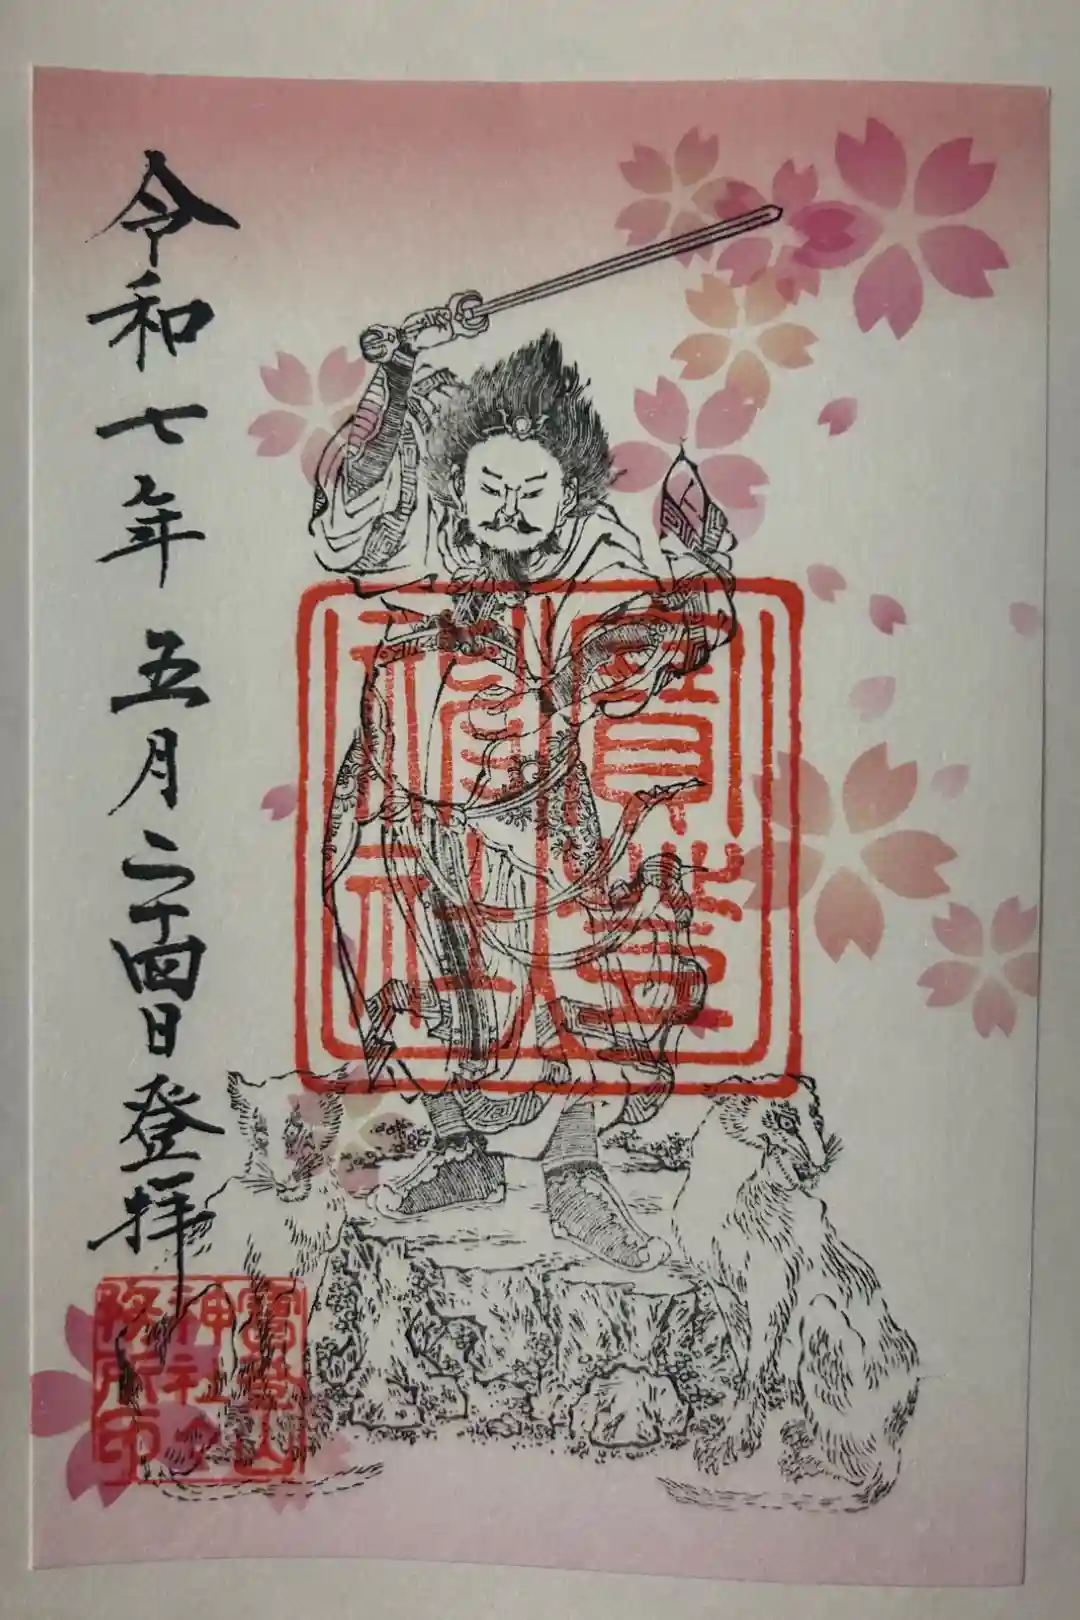 寶登
神社
令和七年五月二十四日登拝
寶登山
神社社
務所印